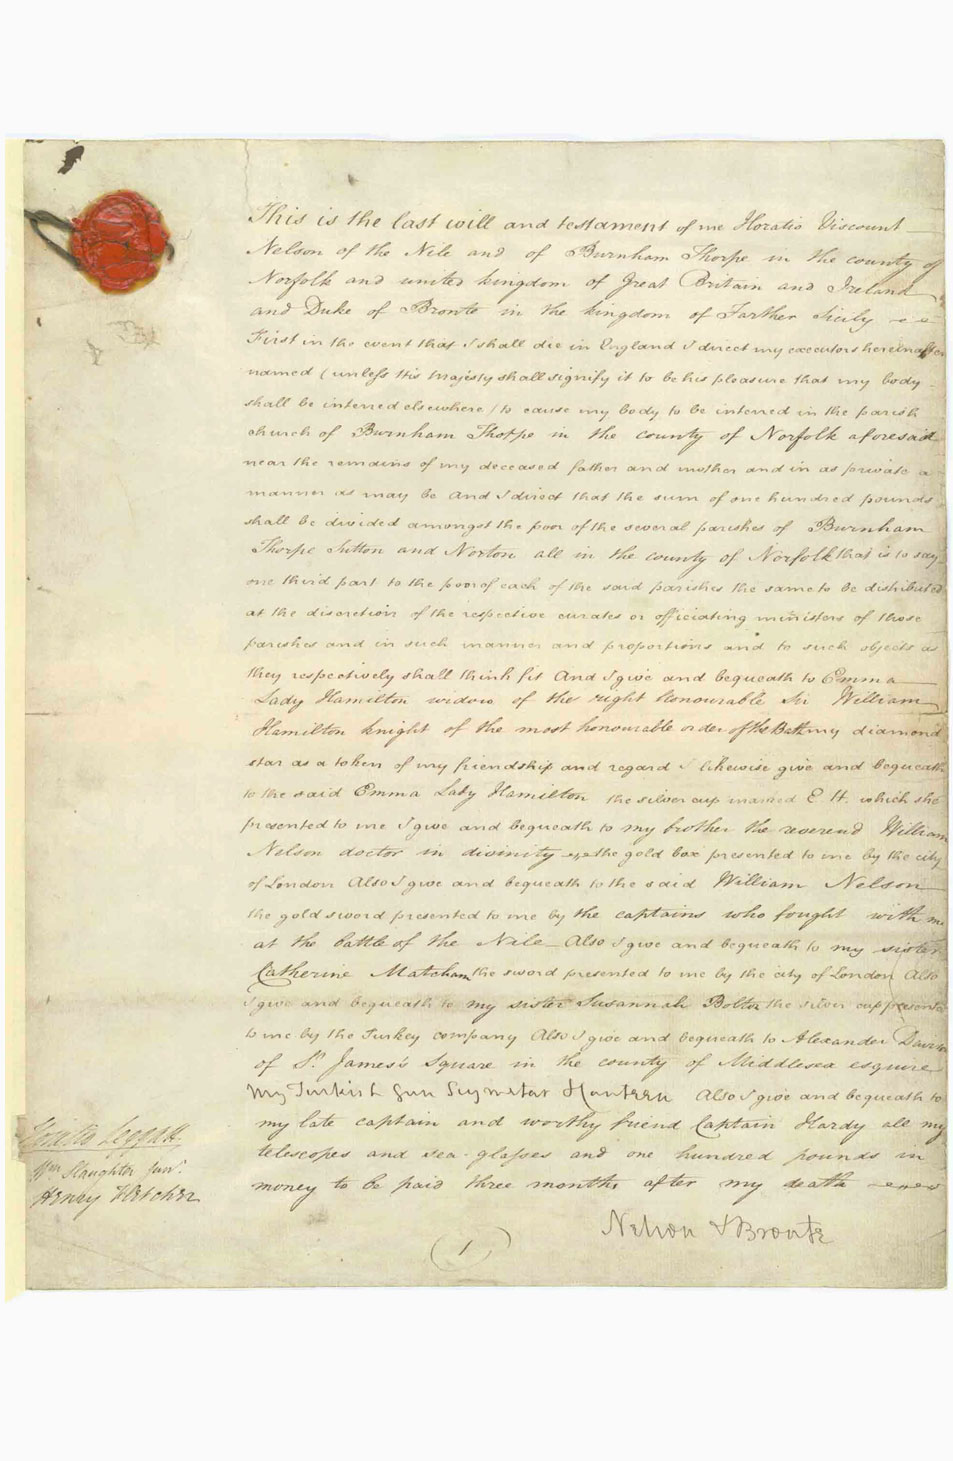 This is the last will and testament of me Horatio Viscount
Nelson of the Nile and of Burnham Thorpe in the county of
Norfolk and united kingdom of Great Britain and Ireland
and Duke of Bronte in the kingdom of Farther Sicily
First in the event that I shall die in England I direct my executors hereinafter
named (unless His Majesty shall signify it to be his pleasure that my body
shall be interred elsewhere) to cause my body to be interred in the parish
church of Burnham Thorpe in the county of Norfolk aforesaid
near the remains of my deceased father and mother and in as private a
manner as may be And I direct that the sum of one hundred pounds
shall be divided amongst the poor of the several parishes of Burnham
Thorpe Sutton and Norton all in the county of Norfolk that is to say
one third part to the poor of each of the said parishes the same to be distributed
at the discretion of the respective curates or officiating ministers of those
parishes and in such manner and proportions and to such objects as
they respectively shall think fit And I give and bequeath to Emma
Lady Hamilton widow of the right honourable Sir William
Hamilton knight of the most honourable order of the Bath my diamond
star as a token of my friendship and regard I likewise give and bequeath
to the said Emma Lady Hamilton the silver cup marked E. H. which she
presented to me I give and bequeath to my brother the reverend William
Nelson doctor in divinity the gold box presented to me by the city
of London Also I give and bequeath to the said William Nelson
the gold sword presented to me by the captains who fought with me
at the battle of the Nile Also I give and bequeath to my sister
Catherine Matcham the sword presented to me by the city of London Also
I give and bequeath to my sister Susannah Bolton the silver cup presented
to me by the Turkey company Also I give and bequeath to Alexander Davison
of St. James's Square in the county of Middlesex esquire
My Turkish Gun Scymetar & Canteen Also I give and bequeath to
my late captain and worthy friend Captain Hardy all my
telescopes and sea-glasses and one hundred pounds in
money to be paid three months after my death
Nelson & Bronte
Horatio Leggatt.
Wm Slaughter Junr.
Henry Fletcher
(1)